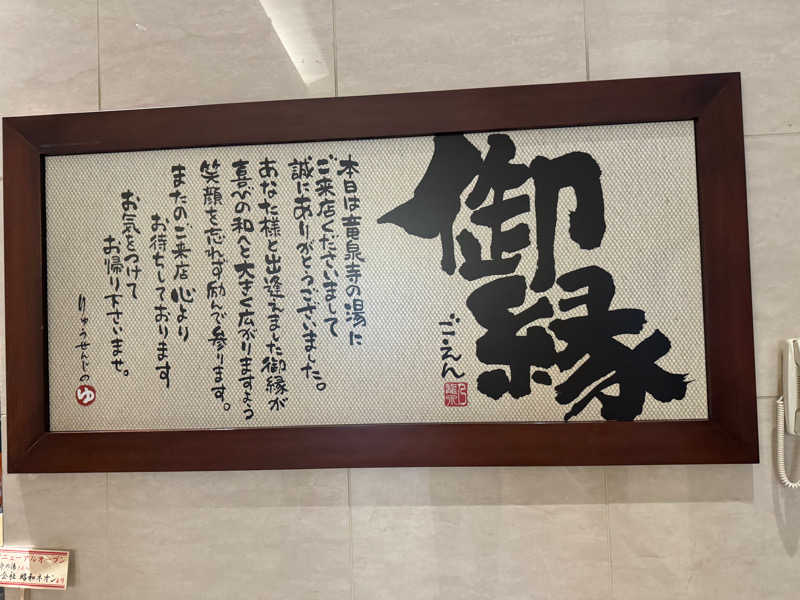 御縁
ご・えん
本日は竜泉寺の湯に
ご来店くださいまして
誠にありがとうございました。
あなた様と出逢えました御縁が
喜びの和へと大きく広がりますよう
笑顔を忘れず励んで参ります。
またのご来店心より
お待ちしております
お気をつけて
お帰り下さいませ。
りゅうせんじの
ゆ
ニューアルオープン
の湯さん江
会社 昭和ネオンより